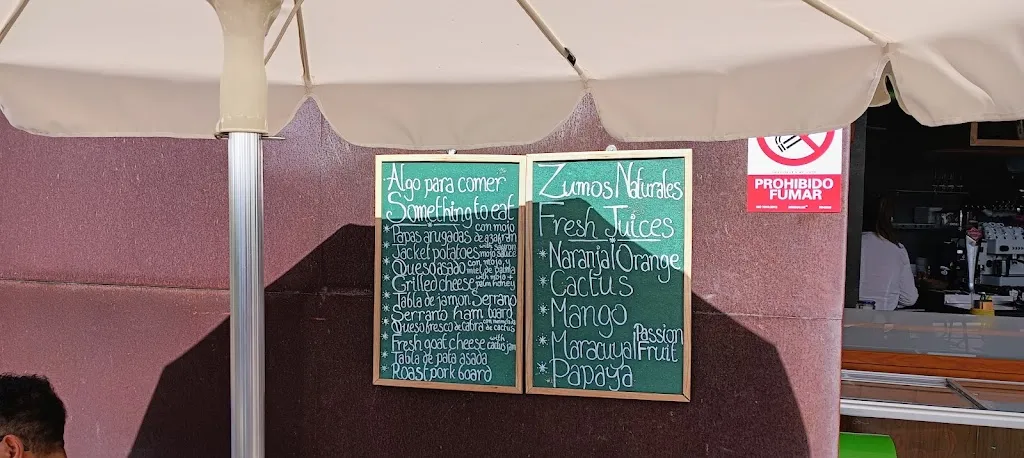 Algo para comer
Something to eat
Papas arugadas con mojo de azafrán
Jacket potatoes with saffron mojo sauce
Queso asado con mojo y miel de palma
Grilled cheese with mojo + palm hidney
Tabla de jamon Serrano
Serrano ham board
Queso fresco de cabra con mermelada de cactus
Fresh goat cheese with cactus jam
Tabla de pata asada
Roast pork board
Zumos Naturales
Fresh Juices
* Naranja/Orange
* Cactus
* Mango
* Maracuya/Passion Fruit
* Papaya
PROHIBIDO
FUMAR